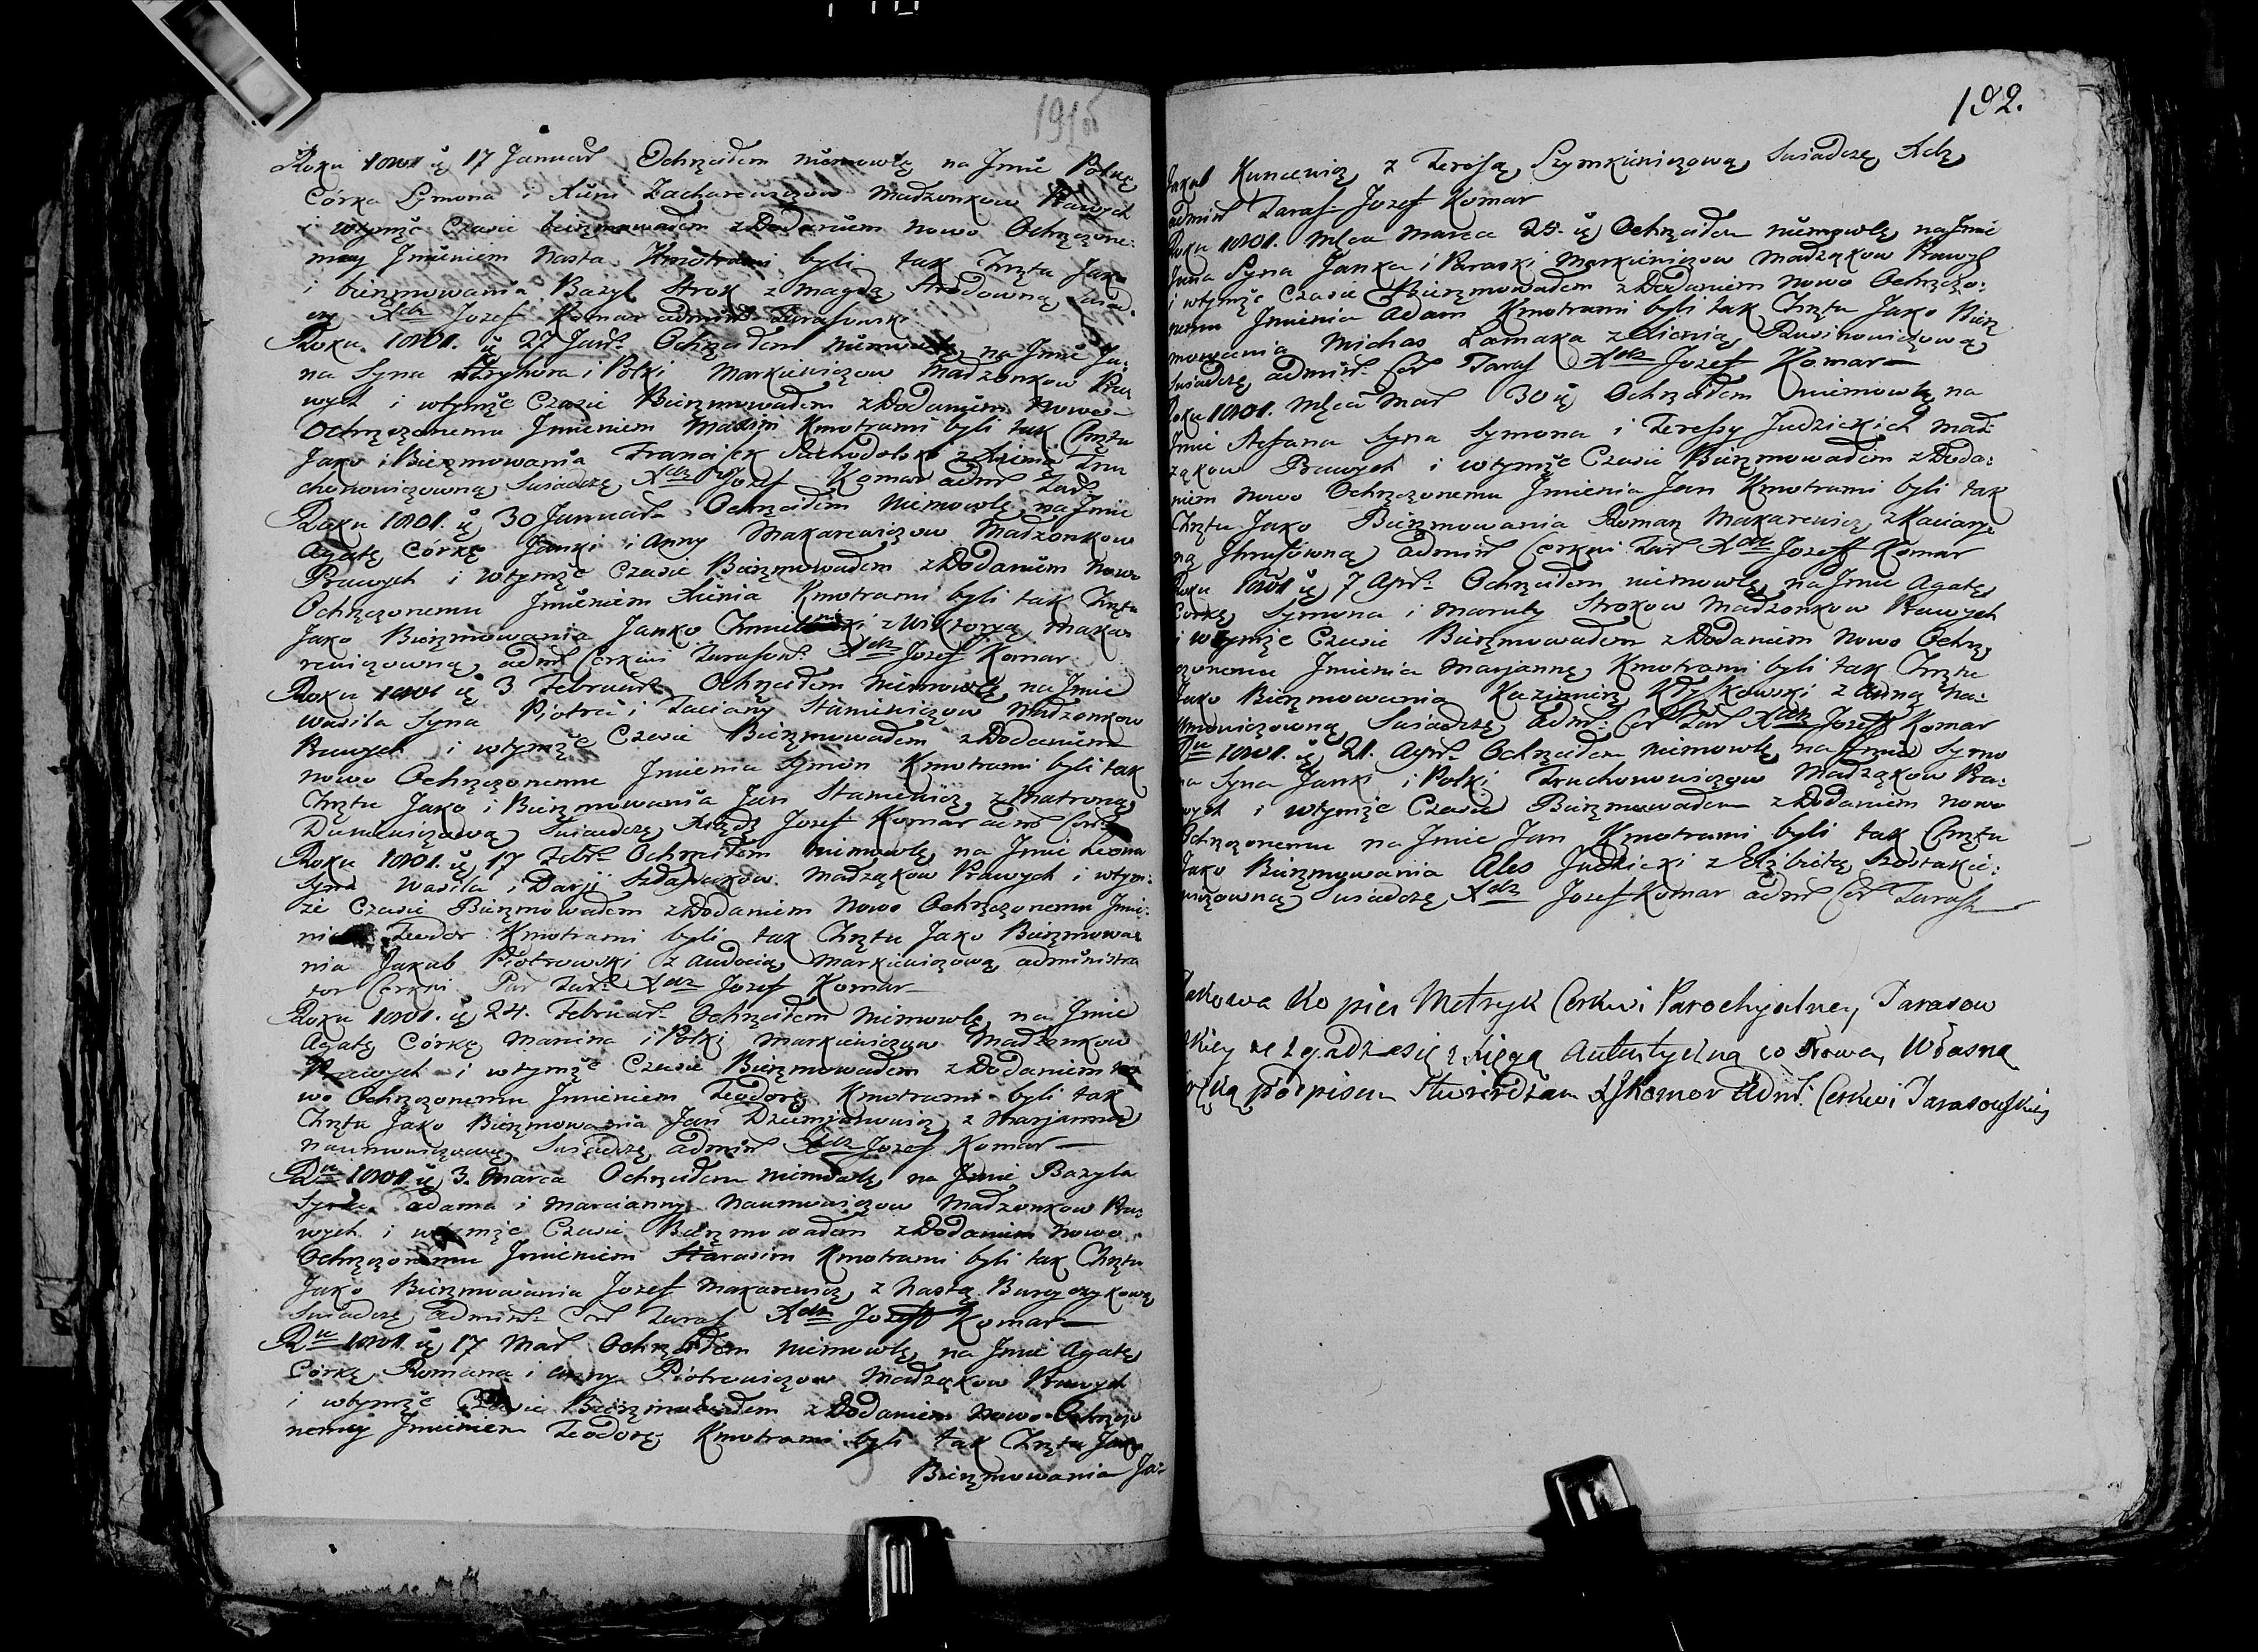 191об
Roku 1801 ię 17 Januar Ochrzciłem niemowlę na Jmie Połuę
Córka Symona i Xieni Zacharewiczow Małżonkow Prawych
i wtymże Czasie bierzmowałem z Dodaniem nowo Ochrzczone:
mey Jmieniem Nasta Kmotrami byli tak Chrztu Jako
i bierzmowania Bazyl Strok z Magdą Strokowną Swiad
czę Xdz Jozef Komar admin Tarasowski
Roku 1801. ię 27 Jan. Ochrzciłem niemowlę na Jmie Ja:
na Syna Hryhora i Połki Markiewiczow Małżonkow Pra
wych i wtymże Czasie Bierzmowałem z Dodaniem nowo
Ochrzczonemu Jmieniem Maxim Kmotrami byli tak Chrztu
Jako i Bierzmowania Franciszek Suchodolski z Xienią Tru
chonowiczowną Swiadczę Xdz Jozef Komar adm Tar
Roku 1801. ię 30 Januar Ochrzciłem Niemowlę na Jmie
Agatę Córkę Janki i Anny Makarewiczow Małżonkow
Prawych i wtymże Czasie Bierzmowałem z Dodaniem Nowo
Ochrzczonemu Jmieniem Xienia Kmotrami byli tak Chrztu
Jako Bierzmowania Janko z Wiktoryą Maka
rewiczowną adm Cerkwi Tarasow Xdz Jozef Komar
Roku 1801 ię 3 Februar Ochrzciłem Niemowlę na Jmie
Wasila Syna Piotra i Taciany Staniewiczow Małżonkow
Prawych i wtymże Czasie Bierzmowałem z Dodaniem
nowo Ochrzczonemu Jmienia Symon Kmotrami byli tak
Chrztu Jako i Bierzmowania Jan Staniewicz z Matroną
Swiadczę Xiądz Jozef Komar adm Cer
Roku 1801. ię 17 Febr Ochrzciłem niemowlę na Jmie Leona
Syna Wasila i Darji Małżąkow Prawych i wtym:
że Czasie Bierzmowałem z Dodaniem Nowo Ochrzczonemu Jmie:
nia Teodor Kmotrami byli tak Chrztu Jako Bierzmowa
nia Jakub Piotrowski z Audocią Markiewiczową administra
tor Cerkwi Par Tar Xdz Jozef Komar
Roku 1801. ię 24. Februar Ochrzciłem Niemowlę na Jmie
Agatę Córkę Marcina i Połki Markiewiczow Małżonkow
Prawych i wtymże Czasie Bierzmowałem z Dodaniem no
wo Ochrzczonemu Jmieniem Teodorę Kmotrami byli tak
Chrztu Jako Bierzmowania Jan z Marjanną
Naumowiczową Swiadczę admin Xdz Jozef Komar
Ru 1801 ię 3. Marca Ochrzciłem niemowlę na Jmie Bazyla
Syna Adama i Marcianny Naumowiczow Małżonkow Pra
wych i wtymże Czasie Bierzmowałem z Dodaniem Nowo
Ochrzczonemu Jmieniem Kmotrami byli tak Chrztu
Jako Bierzmowania Jozef Makarewicz z Nastą
Swiadczę admin Cer Taras Xdz Jozeff Komar
Ru 1801 ię 17 Mar Ochrzciłem niemowlę na Jmie Agatę
Córkę Romana i Anny Piotrowiczow Małżąkow Prawych
i wtymże Czasie Bierzmowałem z Dodaniem Nowo Ochrzczo
nemy Jmieniem Teodorę Kmotrami byli tak Chrztu Jako
Bierzmowania Ja:
192.
Jakub Kuncewicz z Teresą Szymkiewiczową Swiadczę Xdz
admin Taras Jozef Komar
Roku 1801. Mca Marca 25. ię Ochrzciłem niemowlę na Jmie
Jana Syna Janka i Paraski Markiewiczow Małżąkow Prawych
i wtymże Czasie Bierzmowałem z Dodaniem Nowo Ochrzczo:
nemu Jmienia Adam Kmotrami byli tak Chrztu Jako Bierz
mowania Michas Łamaka z Xienią
Swiadczę admin Cer Taras Xdz Jozef Komar
Roku 1801. Mca Mar 30 ię Ochrzciłem niemowlę na
Jmie Stefana Syna Symona i Teressy Judzickich Mał:
żąkow Prawych i wtymże Czasie Bierzmowałem z Doda:
niem nowo Ochrzczonemu Jmienia Jan Kmotrami byli tak
Chrztu Jako Bierzmowania Roman Makarewicz z
admin Cerkwi Tar Xdz Jozeff Komar
Roku 1801 ię 7 Apr Ochrzciłem niemowlę na Jmie Agatę
Corkę Symona i Maruty Strokow Małżonkow Prawych
i wtymże Czasie Bierzmowałem z Dodaniem Nowo Ochrz
czonemu Jmienia Marjannę Kmotrami byli tak Chrztu
Jako Bierzmowania Kazimierz z Anną Na:
umowiczowną Swiadczę adm: Cer Tar Xdz Jozeff Komar
Ru 1801. ię 21. Apr Ochrzciłem niemowlę na Jmie Symo
na Syna Janki i Połki Truchonowiczow Małżąkow Pra:
wych i wtymże Czasie Bierzmowałem z Dodaniem nowo
Ochrzczonemu na Jmie Jan Kmotrami byli tak Chrztu
Jako Bierzmowania Ales Judzicki z Elżbietą Szostakie:
wiczowną Swiadczę Xdz Jozef Komar adm Cer Taras
Takowa Kopiea Metryk Cerkwi Parochyalney Tarasow
skiey że zgadza się z Xięgą Autentyczną co słowa, Własną
ręką podpisem Stwierdzam XJKomor Adm: Cerkwi Tarasowskiey